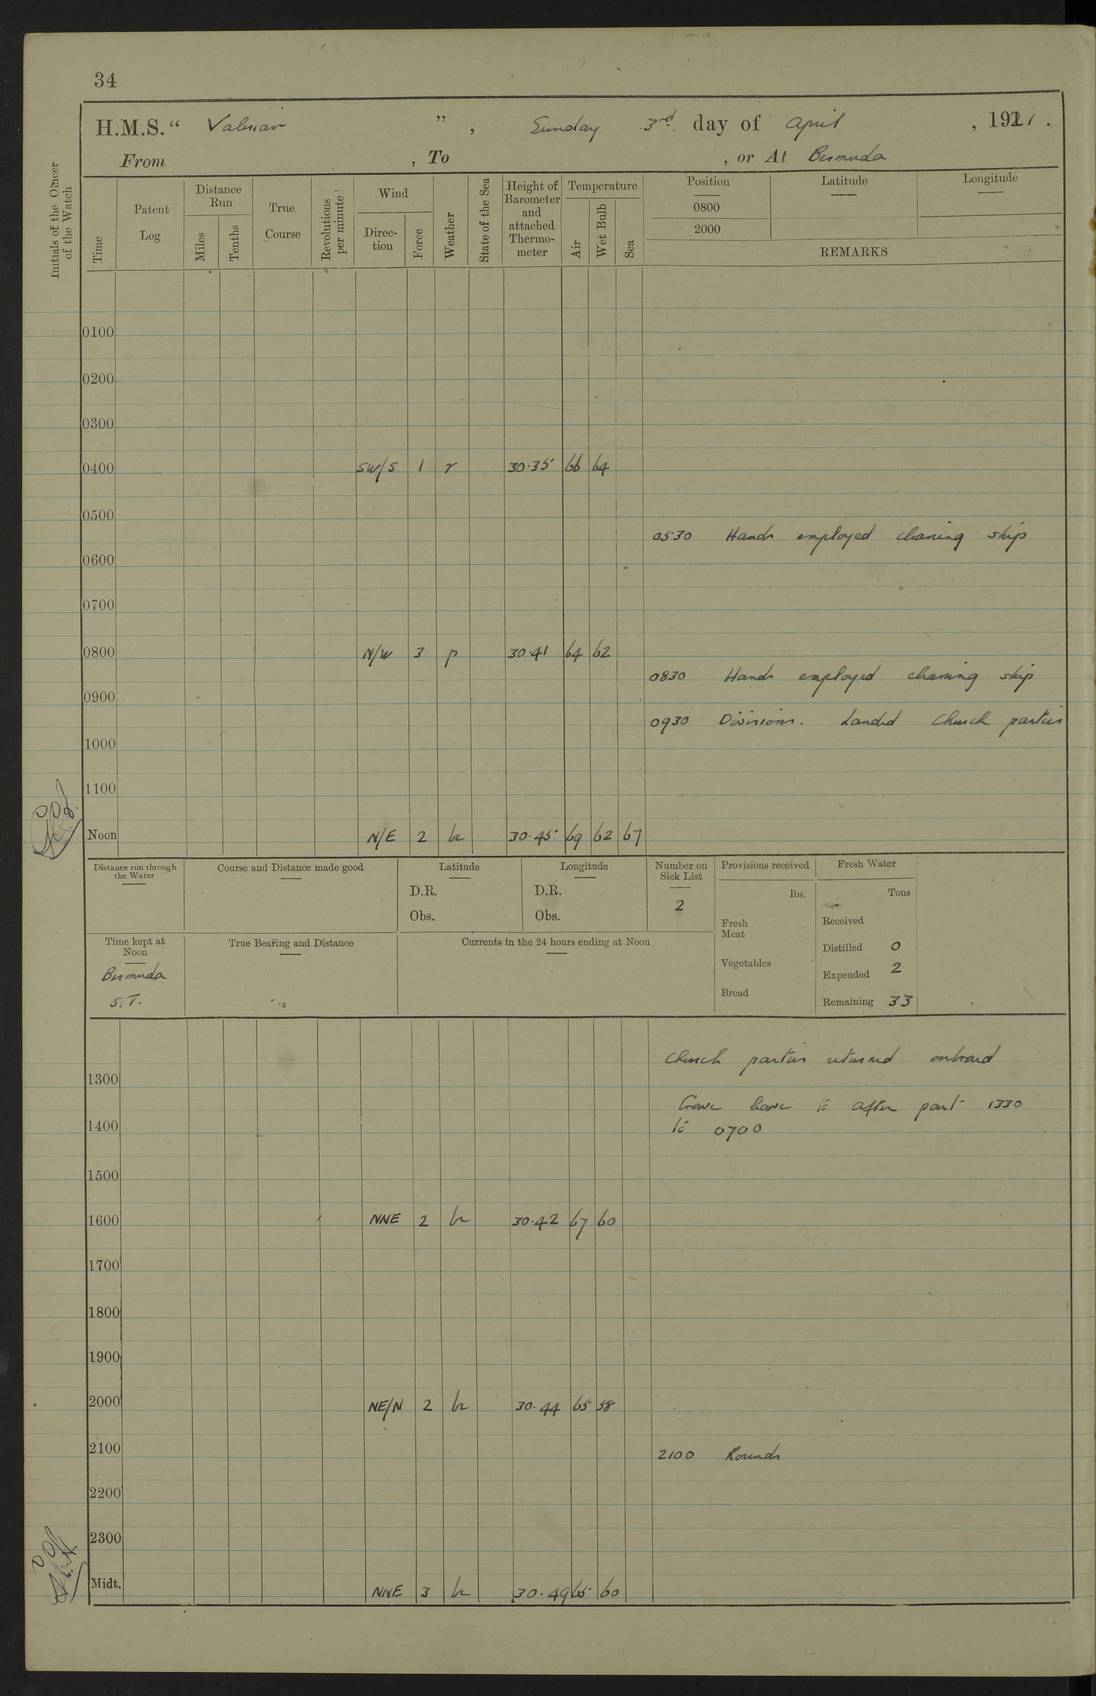 34
H.M.S. "Valerian", Sunday 3rd day of April, 1921.
From , To , or At Bermuda
Initials of the Officer of the Watch
Time
Patent Log
Distance Run
Miles
Tenths
True Course
Revolutions per minute
Wind
Direction
Force
Weather
State of the Sea
Height of Barometer and attached Thermometer
Temperature
Air
Wet Bulb
Sea
Position Latitude Longitude
0800
2000
REMARKS
0100
0200
0300
0400 SW/S 1 r 30.35 66 64
0500
0530 Hands employed cleaning ship
0600
0700
0800 N/W 3 p 30.41 64 62
0830 Hands employed cleaning ship
0900
0930 Divisions. Landed Church parties
1000
1100
Noon N/E 2 bc 30.45 69 62 67
Distance run through the Water
Course and Distance made good
Latitude
D.R.
Obs.
Longitude
D.R.
Obs.
Number on Sick List
2
Provisions received
lbs.
Fresh Meat
Vegetables
Bread
Fresh Water
Tons
Received
Distilled 0
Expended 2
Remaining 33
Time kept at Noon
Bermuda
S.T.
True Bearing and Distance
Currents in the 24 hours ending at Noon
Church parties returned onboard
1300
Gave leave to after part 1330
1400
to 0700
1500
1600 NNE 2 bc 30.42 67 60
1700
1800
1900
2000 NE/N 2 bc 30.44 65 58
2100
2100 Rounds
2200
2300
Midt. NNE 3 bc 30.49 65 60